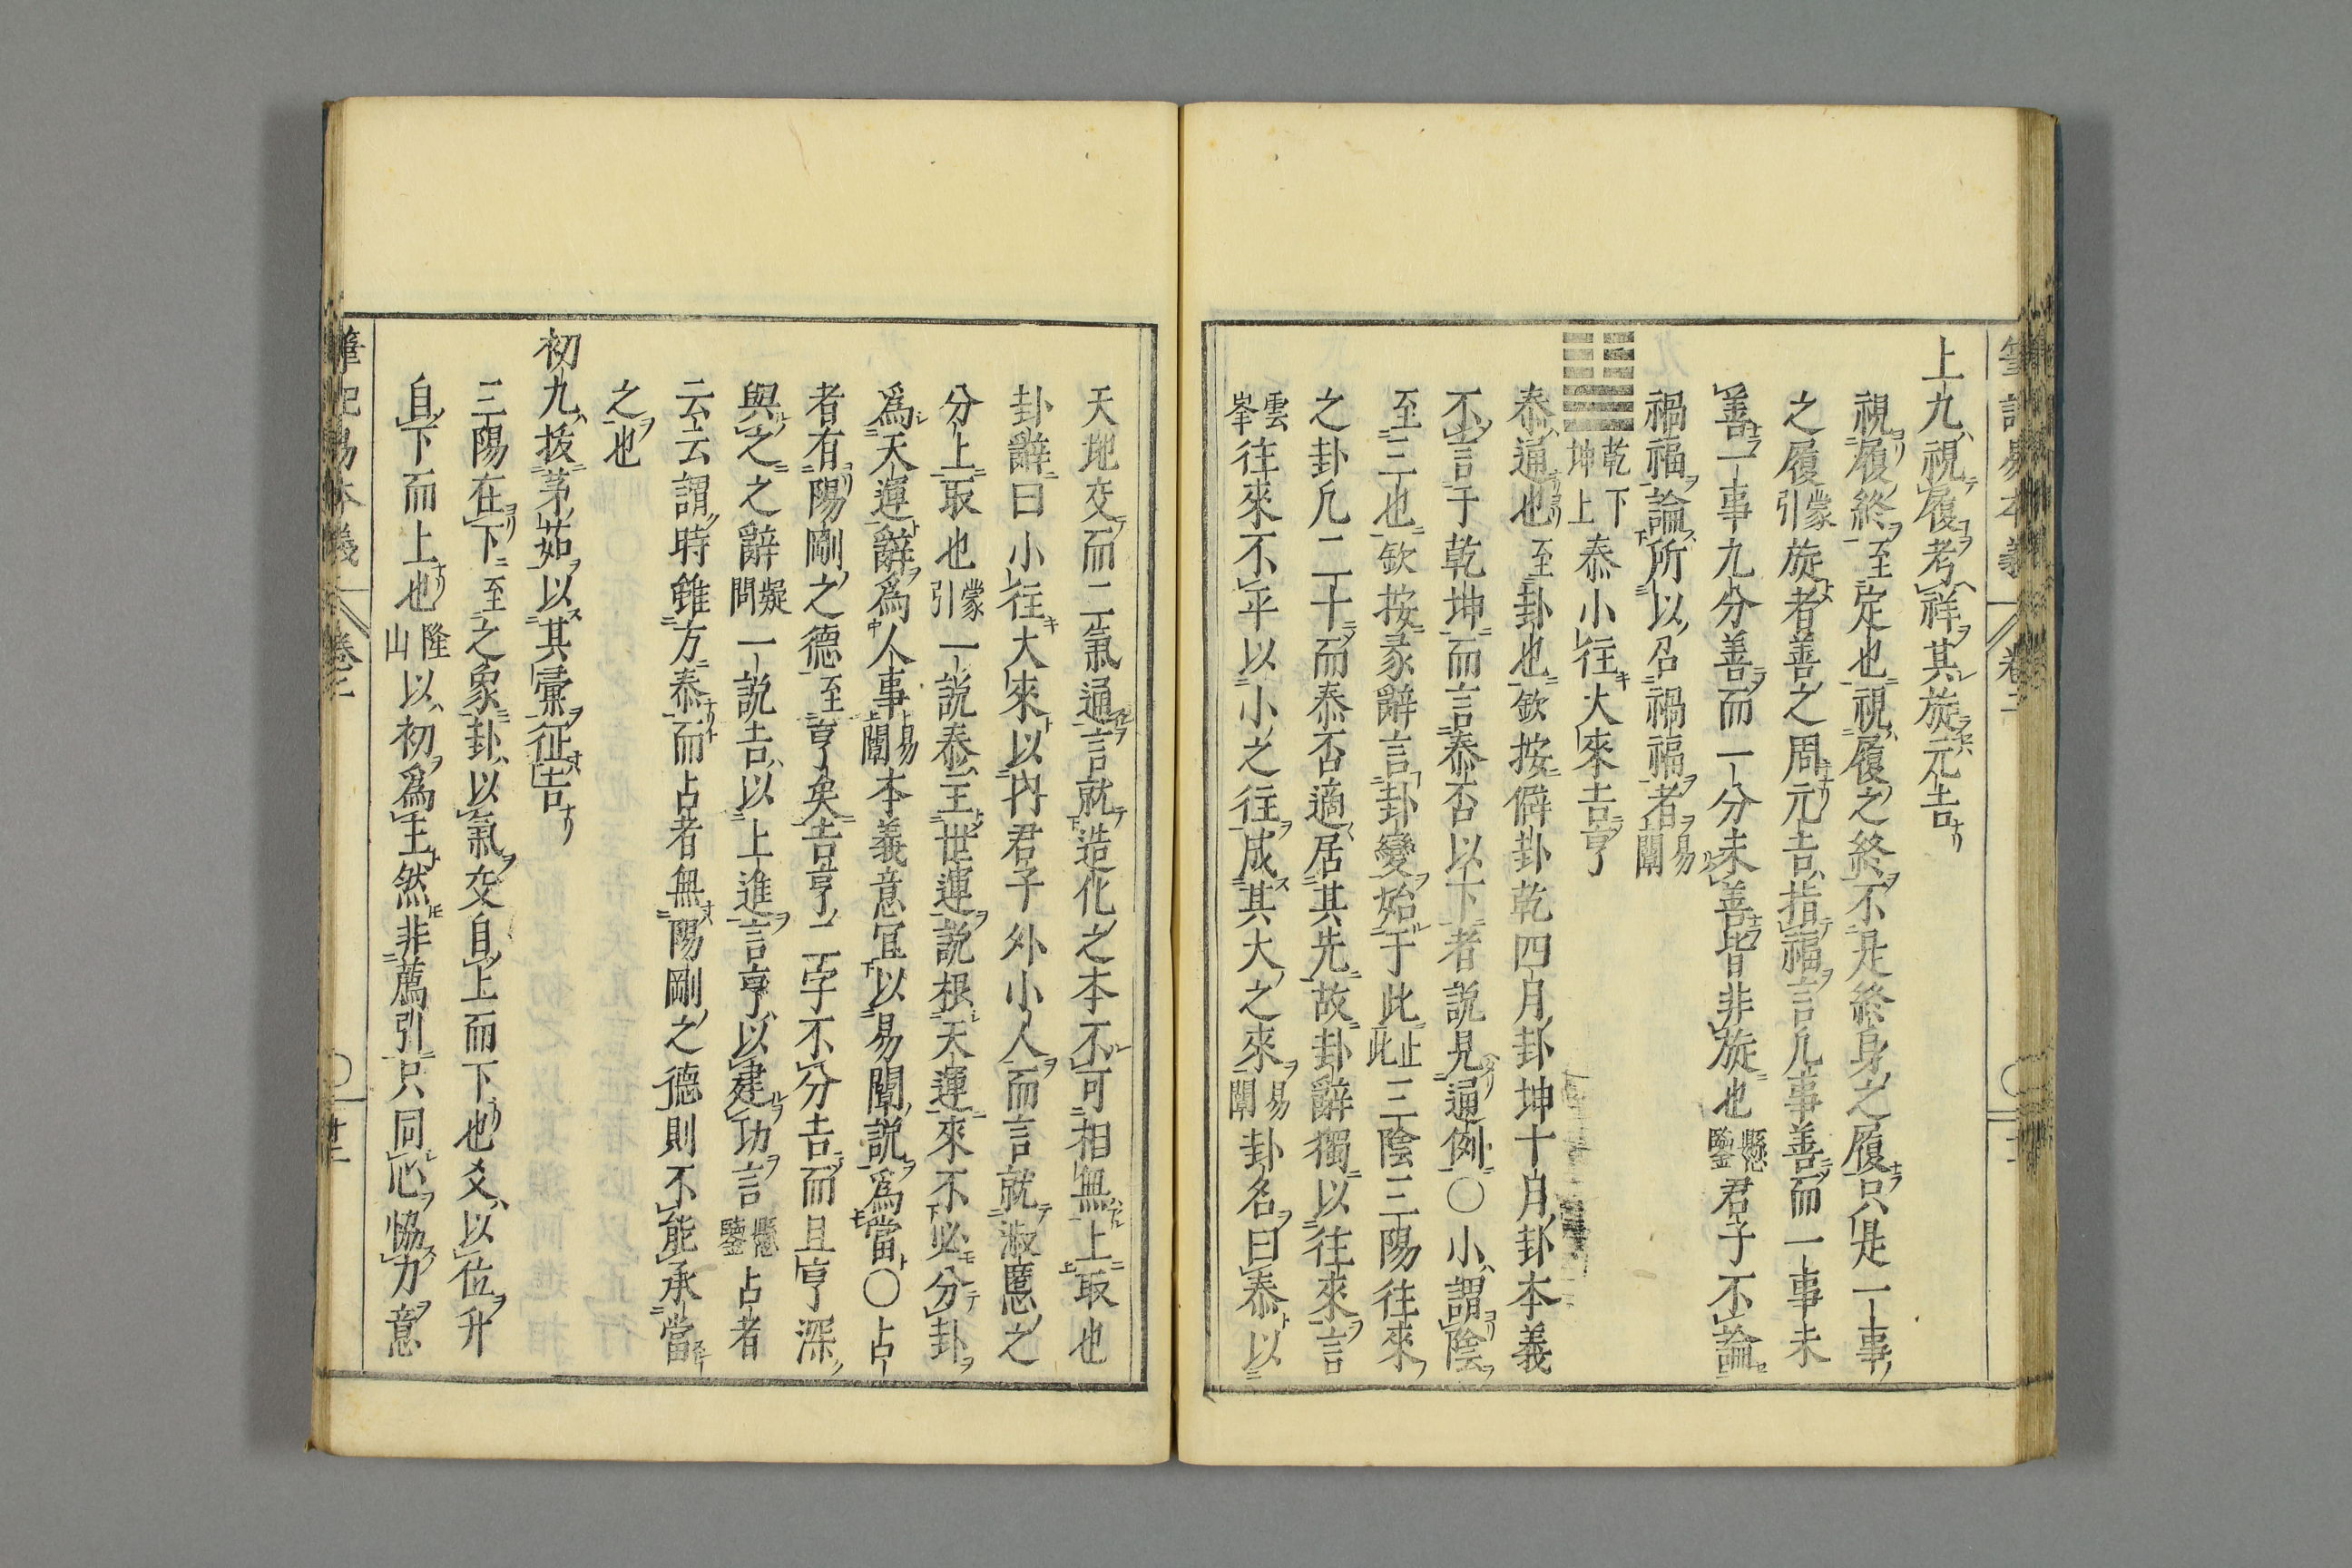 上九視履考祥其旋元吉
視履終至定也視履之終不是終身之履只是一事
之履蒙引旋者善之周元吉指福言凡事善而一事未
善一事九分善而一分未善皆非旋也懸鑒君子不論
禍福論所以召禍福者易闡
䷊乾下坤上泰小往大來吉亨
泰通也至卦也欽按僻卦乾四月卦坤十月卦本義
不言于乾坤而言泰否以下者説見通例○小謂陰
至三也欽按彖辭言卦變始于此止此三陰三陽往來
之卦凡二十而泰否適居其先故卦辭獨以往來言
雲峯往來不平以小之往成其大之來易闡卦名曰泰以
天地交而二氣通言就造化之本不可相無上取也
卦辭曰小往大來以内君子外小人而言就淑慝之
分上取也蒙引一説泰主世運説根天運來不必分卦
爲天運辭爲人事易闡本義意宜以易闡説爲當○占
者有陽剛之德至亨矣吉亨二字不分吉而且亨深
與之之辭疑問一説吉以上進言亨以建功言懸鑒占者
云云謂時雖方泰而占者無陽剛之德則不能承當
之也
初九拔茅茹以其彙征吉
三陽在下至之象卦以氣交自上而下也爻以位升
自下而上也隆山以初爲主然非薦引只同心協力意
筆記易本義 卷二